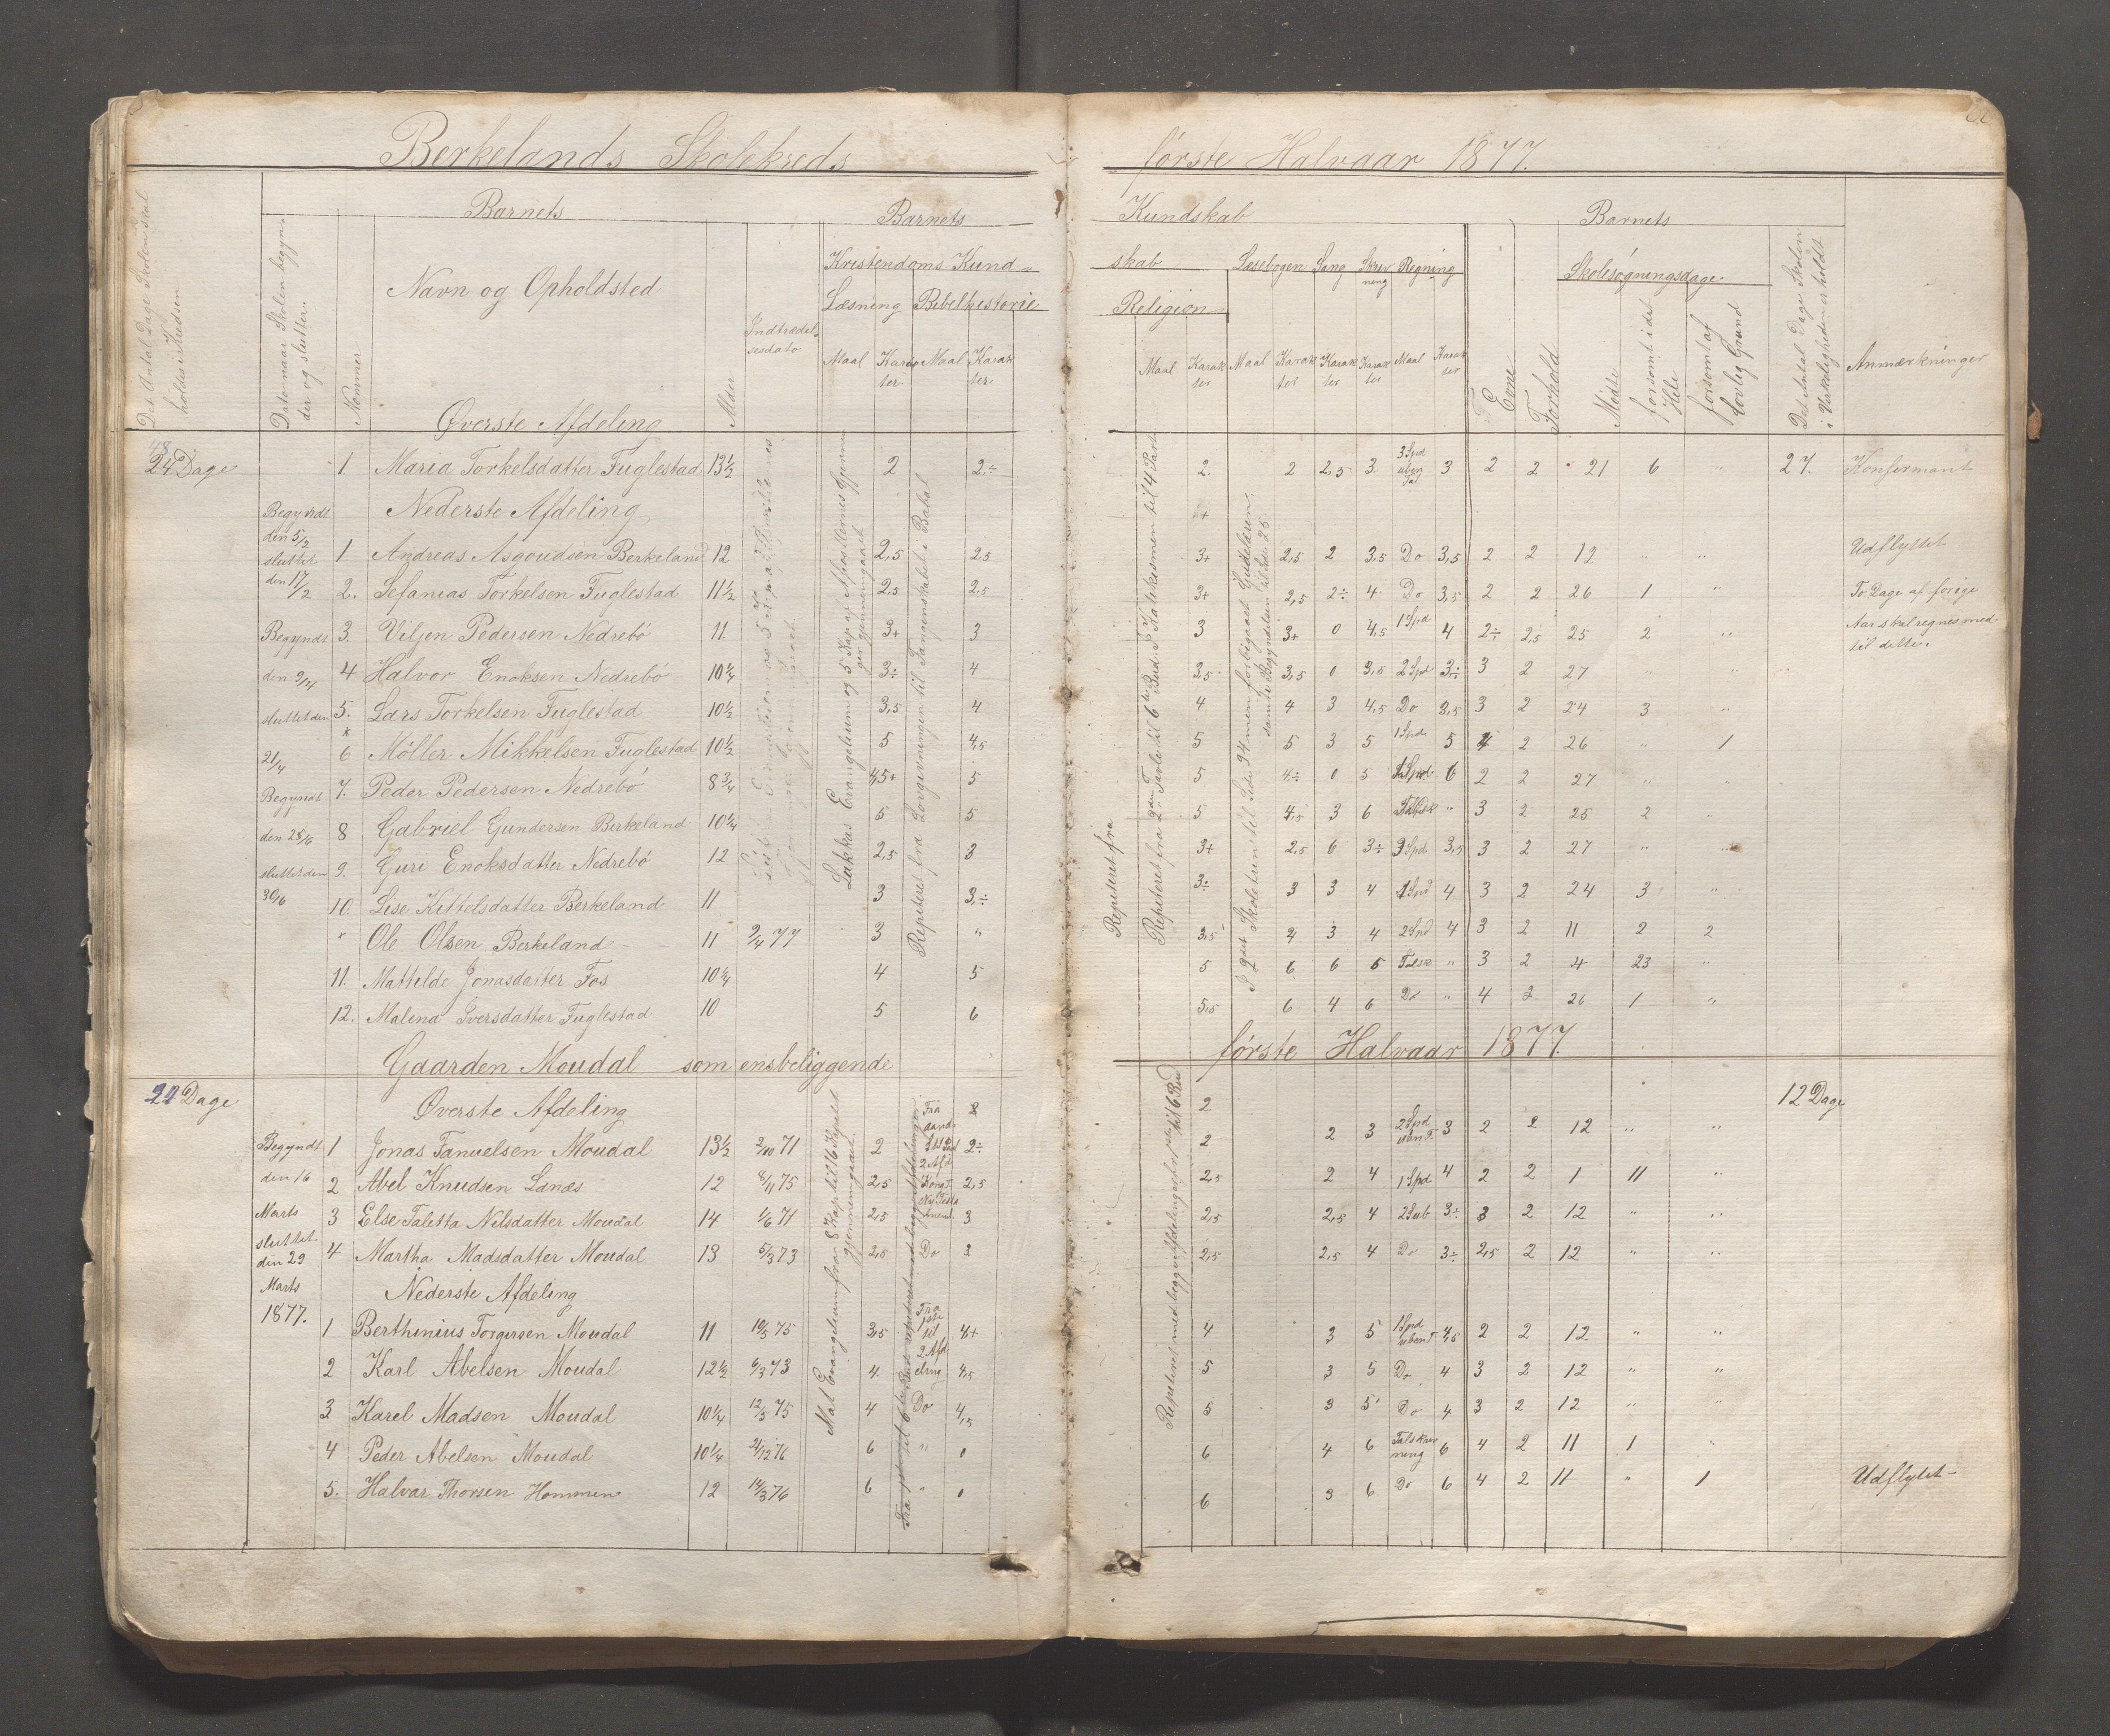 Berkelands Skolekreds første Halvaar 1877.
Det Antal Dage Skolen skal holdes i Kredsen
Dato naar Skolen begynder og slutter.
Nommer
Barnets
Navn og Opholdsted
Alder
Indtrædelsesdato
Barnets Kundskab
Kristendoms Kundskab
Læsning Bibelhistorie Religion
Maal Karakter Maal Karakter Maal Karakter
Læsebogen Sang Skrivning Regning
Maal Karakter Karakter Karakter Maal Karakter
Barnets
Evne
Forhold
Skolesøgningsdage
Mødte
forsømt i det Hele
forsømt af lovlig Grund
Det Antal Dage Skolen i Virkeligheden er holdt
Anmærkninger
Øverste Afdeling
24 Dage
1 Maria Torkelsdatter Fuglestad 13½ 2 2÷ 2 2 2,5 3 3 Spd uben Tal 3 2 2 21 6 " 27. Konfirmant
Nederste Afdeling
Begyndt den 5/2 sluttet den 17/2
Begyndt den 9/4 sluttet den 21/4
Begyndt den 28/6 sluttet den 30/6
1 Andreas Asgoudsen Berkeland 12 2,5 2,5 3+ 2,5 2 3,5 Do 3,5 2 2 12 " " Udflyttet
2. Sefanias Torkelsen Fuglestad 11½ 2,5 2,5 3+ 2,5 2÷ 4 Do 3,5 2 2 26 1 " To Dage af forige
3. Viljen Pedersen Nedrebø 11 3+ 3 3 3+ 0 4,5 1 Spd 4 2÷ 2,5 25 2 " Aar skal regnes med
til dette.
4 Halvor Enoksen Nedrebø 10¼ 3÷ 4 3,5 3,5 0 3,5 2 Spd 3÷ 3 2 27 " "
5. Lars Torkelsen Fuglestad 10½ 3,5 4 4 4 3 4,5 Do 3,5 3 2 24 3 "
6 Møller Mikkelsen Fuglestad 10½ 5 4,5 5 5 3 5 1 Spd 5 4 2 26 " 1
7. Peder Pedersen Nedrebø 8¾ 4,5+ 5 5 4÷ 0 5 1 Spd 6 2 2 27 " "
8 Gabriel Gundersen Berkeland 10¼ 5 5 5 4,5 3 6 " 3 2 25 2 "
9. Guri Enoksdatter Nedrebø 12 2,5 3 3+ 2,5 6 3÷ 3 Spd 3,5 3 2 27 " "
10. Lise Kittelsdatter Berkeland 11 3 3÷ 3÷ 3 3 4 1 Spd 4 3 2 24 3 "
* Ole Olsen Berkeland 11 9/4 77 3 " 3,5 4 3 4 2 Spd 4 3 2 11 2 2
11. Mathilde Jonasdatter Fos 10¼ 4 5 5 6 6 6 " 3 2 4 23 "
12. Malena Iversdatter Fuglestad 10 5 6 5,5 6 4 6 Do " 4 2 26 1 "
Lukkas Evangelium og 5 Kap af Apostlernes gjerninger gjennemgaaet
Repiteret fra Lovgivningen til Fangenskabet i Babel
Repiteret fra
Gaarden Moudal som ensbeliggende første Halvaar 1877.
Øverste Afdeling
Dage 12 Dage
Begyndt den 16 Marts sluttet den 29 Marts 1877.
1 Jonas Fanuelsen Moudal 13½ 2/10 71 2 2÷ 2 2 3 2 Spd uben T 3 2 2 12 " "
2 Abel Knudsen Lanæs 12 8/11 75 2,5 2,5 2,5 2 4 1 Spd 4 2 2 1 11 "
3 Else Taletta Nilsdatter Moudal 14 1/6 71 2,5 3 2,5 2,5 4 2 Sub 3÷ 3 2 12 " "
4 Martha Madsdatter Moudal 13 5/3 73 2,5 Do 3 2,5 2,5 4 Do 3÷ 2,5 2 12 " "
Nederste Afdeling
1 Berthinius Torgersen Moudal 11 19/5 75 3,5 4+ 4 3 5 1 Spd uben T 4,5 2 2 12 " "
2 Karl Abelsen Moudal 12½ 6/3 73 4. 4,5 5 3 5 Do 4 3 2 12 " "
3 Karel Madsen Moudal 10¼ 12/5 75 4 Do 4,5 5 3 5 Do 4 3 2 12 " "
4 Peder Abelsen Moudal 10¼ 21/12 76 6 " 0 6 4 6 Talskrivning 6 4 2 11 1 "
5. Halvar Thorsen Hommen 12 14/3 76 6 " 0 6 3 6 Do 6 4 2 11 " 1 Udflyttet